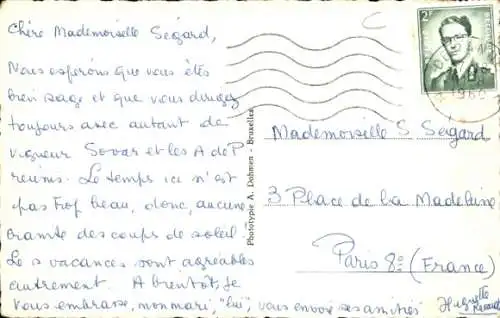 Chère Mademoiselle Ségard,
Nous espérons que vous êtes
bien sage et que vous dirigez
toujours avec autant de
vigueur Sovar et les A de P
reunis. Le temps ici n'est
pas trop beau, donc, aucune
crainte des coups de soleil.
Les vacances sont agréables
autrement. A bientôt, je
vous embrasse, mon mari, "lui", vous envoie ses amitiés
Huguette
Phototypie A. Dohmen - Bruxelles
2F
1960
Mademoiselle S. Ségard
3 Place de la Madeleine
Paris 8e (France)